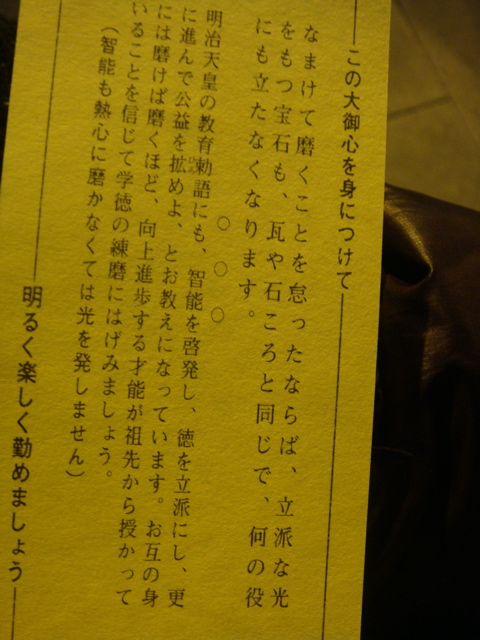 この大御心を身につけて
なまけて磨くことを怠ったならば、立派な光
をもつ宝石も、瓦や石ころと同じで、何の役
にも立たなくなります。
○○○
明治天皇の教育勅語にも、智能を啓発し、徳を立派にし、更
に進んで公益を拡めよ、とお教えになっています。お互の身
には磨けば磨くほど、向上進歩する才能が祖先から授かって
いることを信じて学徳の練磨にはげみましょう。
(智能も熱心に磨かなくては光を発しません)
明るく楽しく勤めましょう